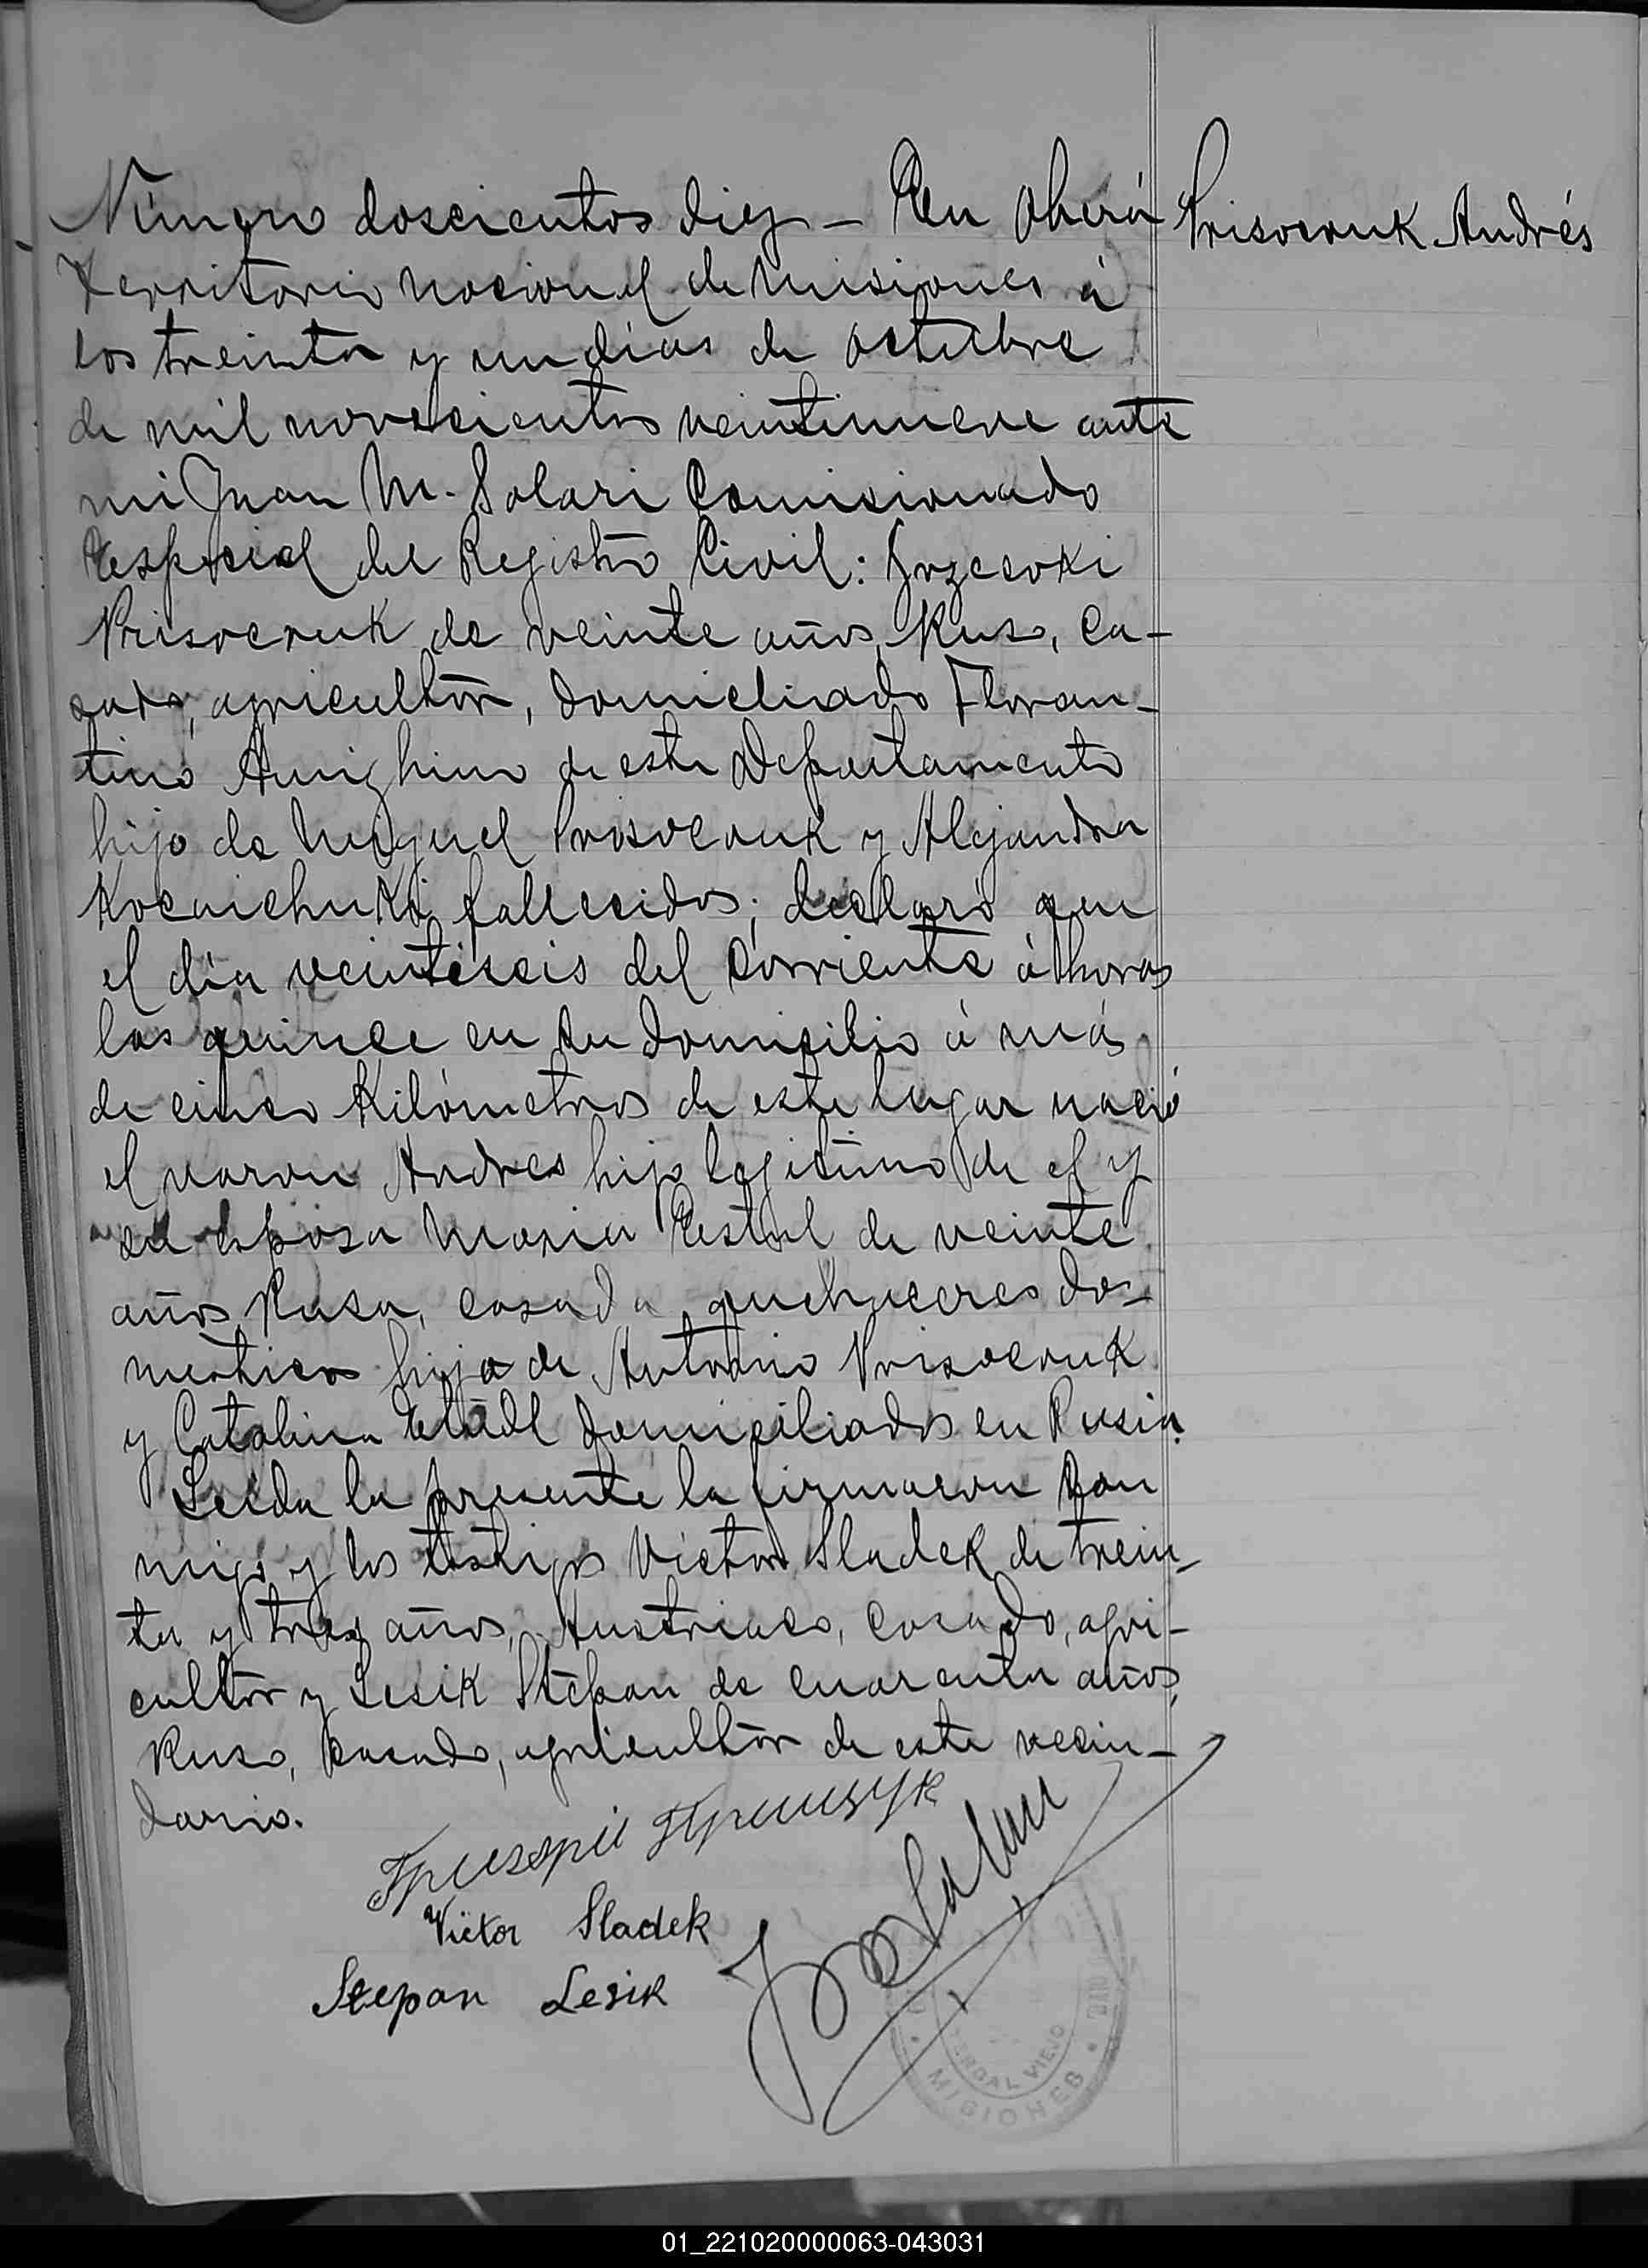 Número doscientos diez – En Oberá
Prisocruk Andrés
Territorio nacional de Misiones á
los treinta y un dias de octubre
de mil novecientos veintinueve ante
mi Juan M. Solari Comisionado
Especial del Registro Civil:
Prisocruk de veinte años, Ruso, Ca-
sado, agricultor, domicliado Floran-
tino Amighino de este Departamento
hijo de Miguel Prisocruk y Alejandra
fallecidos; declaró que
el día veintiseis del corriente á horas
las quince en su domicilio á más
de cinco Kilómetros de este lugar nació
el varon Andres hijo legitimo de el y
su esposa Maria de veinte
años Rusa, casada, quehaceres do-
mesticos hija de Antonio Prisocruk
y Catalina domiciliados en Rusia.
Leida la presente la firmaron con
migo y los testigos Victor Sladek de trein-
ta y tres años, Austriaco, casado, agri-
cultor y Lesik Stepan de cuarenta años,
Ruso, casado, agricultor de este vecin-
dario.
Григорій
Victor Sladek
Stepan Lesik
JM Solari
YERBAL VIEJO
MISIONES
01_221020000063-043031